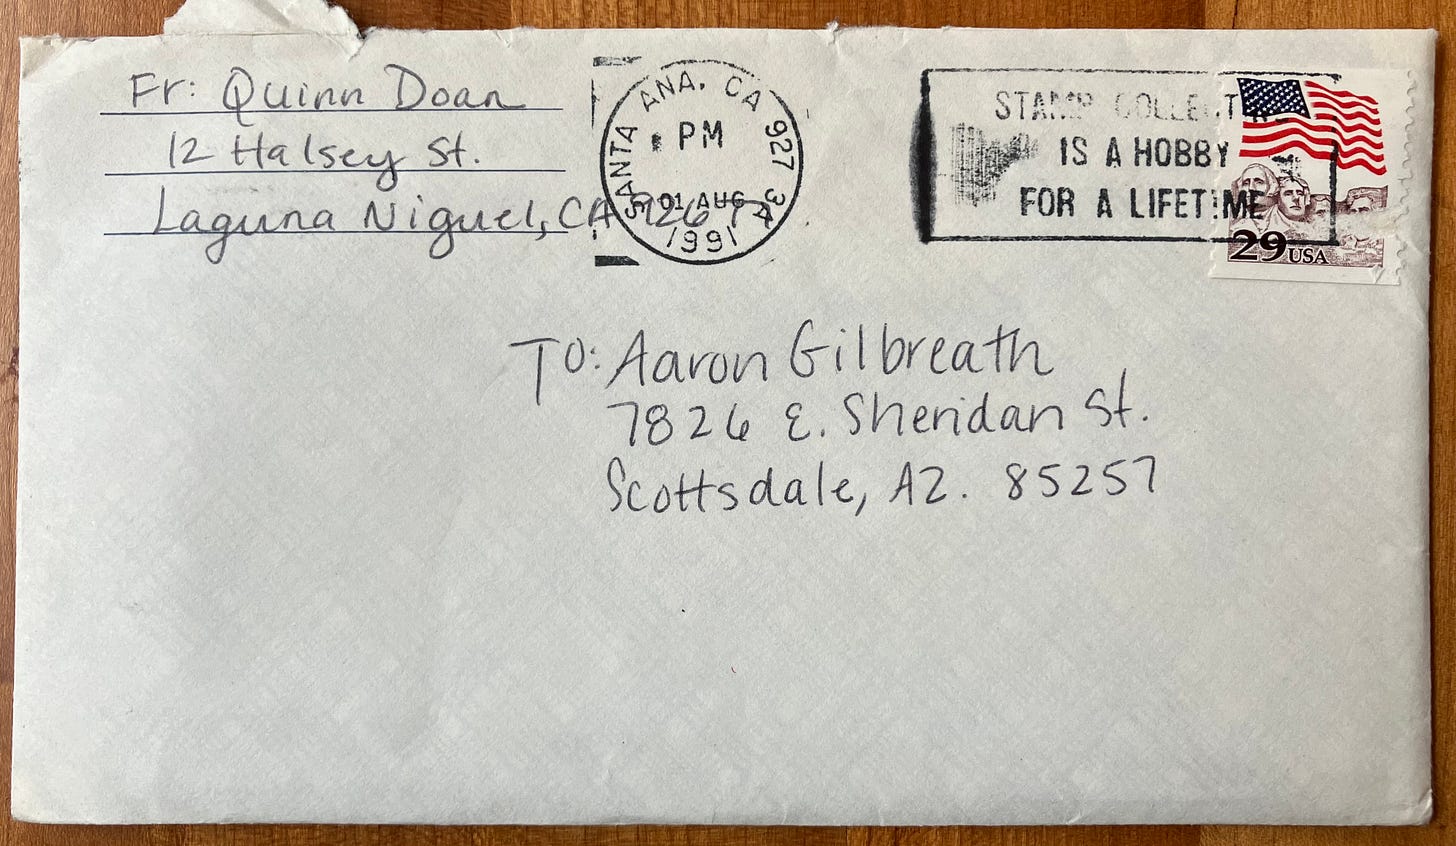 Fr: Quinn Doan
12 Halsey St.
Laguna Niguel, CA
SANTA ANA, CA 927
PM
01 AUG
1991
STAMP COLLECT
IS A HOBBY
FOR A LIFETIME
29 USA
To: Aaron Gilbreath
7826 E. Sheridan St.
Scottsdale, AZ. 85257